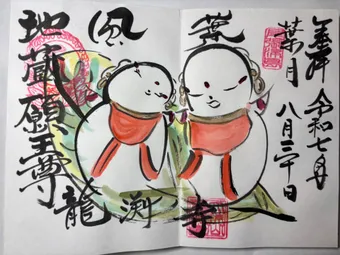 奉拝 令和七年
八月三十日
葉月
風
地蔵願王尊
龍渕寺